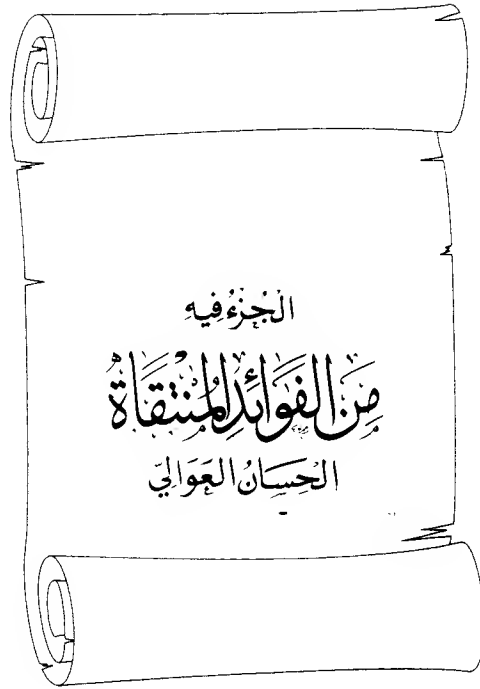 الجُزءُ فِيهِ
مِنَ الفَوَائِدِ المُنْتَقَاةُ
الحِسَانُ العَوَالِيّ